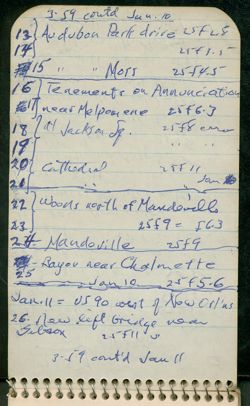 3-59 cont'd Jan. 10
13 } Audubon Park drive 25f2.8
14
15 " " Moss 25f4.5
16 } Tenements on Annunciation
17 near Melpomene 25f6.3
18 } At Jackson Sq. 25f8
19 " "
20 } Cathedral 25f11
21 Jan
22 } Woods north of Mandeville
23 25f9 = f6.3
24 Mandeville 25f9
25 Bayou near Chalmette
Jan 10 25f5.6
Jan. 11 = US 90 west of New Orl'ns
26- New lift bridge near
Gibson 25f11
3-59 cont'd Jan 11